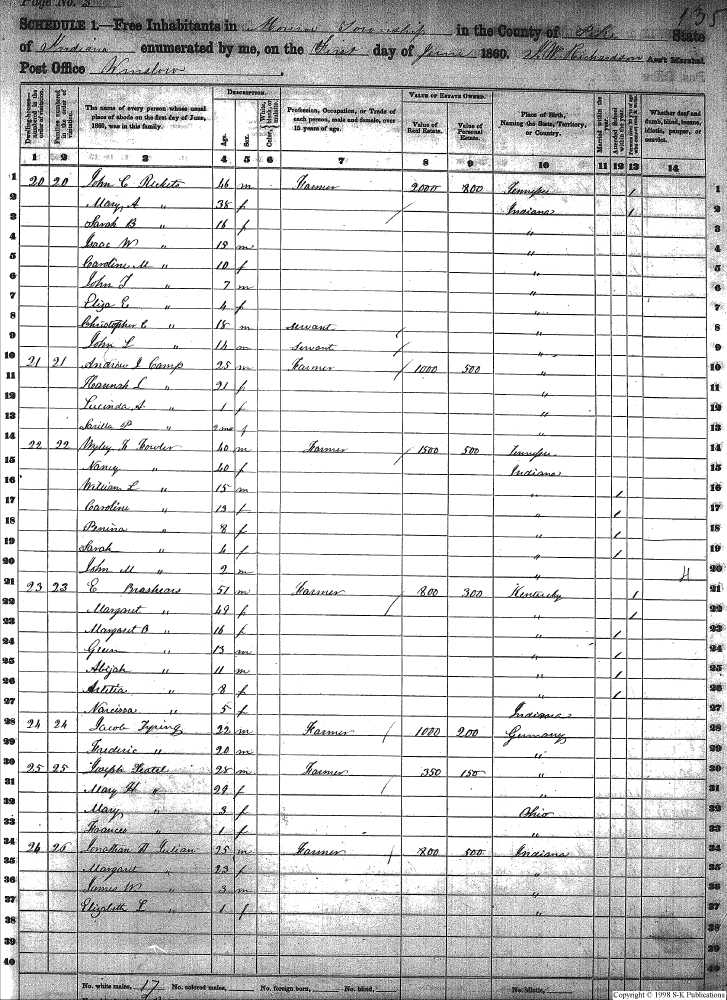 Page No. 3
135
SCHEDULE 1.—Free Inhabitants in Monroe Township in the County of Pike State
of Indiana enumerated by me, on the First day of June 1860. Ass't Marshal
Post Office Winslow
Dwelling-houses numbered in the order of visitation.
Families numbered in the order of visitation.
The name of every person whose usual place of abode on the first day of June, 1860, was in this family.
DESCRIPTION.
Age.
Sex.
Color, White, black, or mulatto.
Profession, Occupation, or Trade of each person, male and female, over 15 years of age.
VALUE OF ESTATE OWNED.
Value of Real Estate.
Value of Personal Estate.
Place of Birth, Naming the State, Territory, or Country.
Married within the year.
Attended School within the year.
Whether deaf and dumb, blind, insane, idiotic, pauper, or convict.
1 2 3 4 5 6 7 8 9 10 11 12 13 14
1 20 20 John C Ricketts 46 m Farmer 2000 800 Tennessee / 1
2 Mary A " 38 f Indiana / 2
3 Sarah B " 16 f " 3
4 Isaac W " 12 m " 4
5 Caroline M " 10 f " 5
6 John T " 7 m " 6
7 Eliza E " 4 f " 7
8 Christopher C " 18 m servant " 8
9 John L " 14 m servant " 9
10 21 21 Andrew J Camp 25 m Farmer 1000 500 " 10
11 Hannah L " 21 f " 11
12 Lucinda A " 1 f " 12
13 P " 2 mo f " 13
14 22 22 Wyley Fowler 40 m Farmer 1500 500 Tennessee 14
15 Nancy " 40 f Indiana 15
16 William L " 15 m " / 16
17 Caroline " 13 f " / 17
18 " 8 f " / 18
19 Sarah " 4 f " / 19
20 John M " 2 m " 20
21 23 23 E Brashears 51 m Farmer 800 300 Kentucky / 21
22 Margaret " 49 f " / 22
23 Margaret B " 16 f " / 23
24 Green " 13 m " / 24
25 Abijah " 11 m " / 25
26 " 8 f " / 26
27 Narcissa " 5 f Indiana 27
28 24 24 Jacob 22 m Farmer 1000 200 Germany 28
29 Frederic " 20 m " 29
30 25 25 Joseph 28 m Farmer 350 150 " 30
31 Mary H " 29 f " 31
32 Mary " 3 f Ohio 32
33 Frances " 1 f " 33
34 26 26 Jonathan Julian 25 m Farmer 800 500 Indiana 34
35 Margaret " 23 f " 35
36 James W " 3 m " 36
37 Elizabeth L " 1 f " 37
38 38
39 39
40 40
No. white males, 17 No. colored males, No. foreign born, No. blind, No. idiotic,
Copyright © 1998 S-K Publications